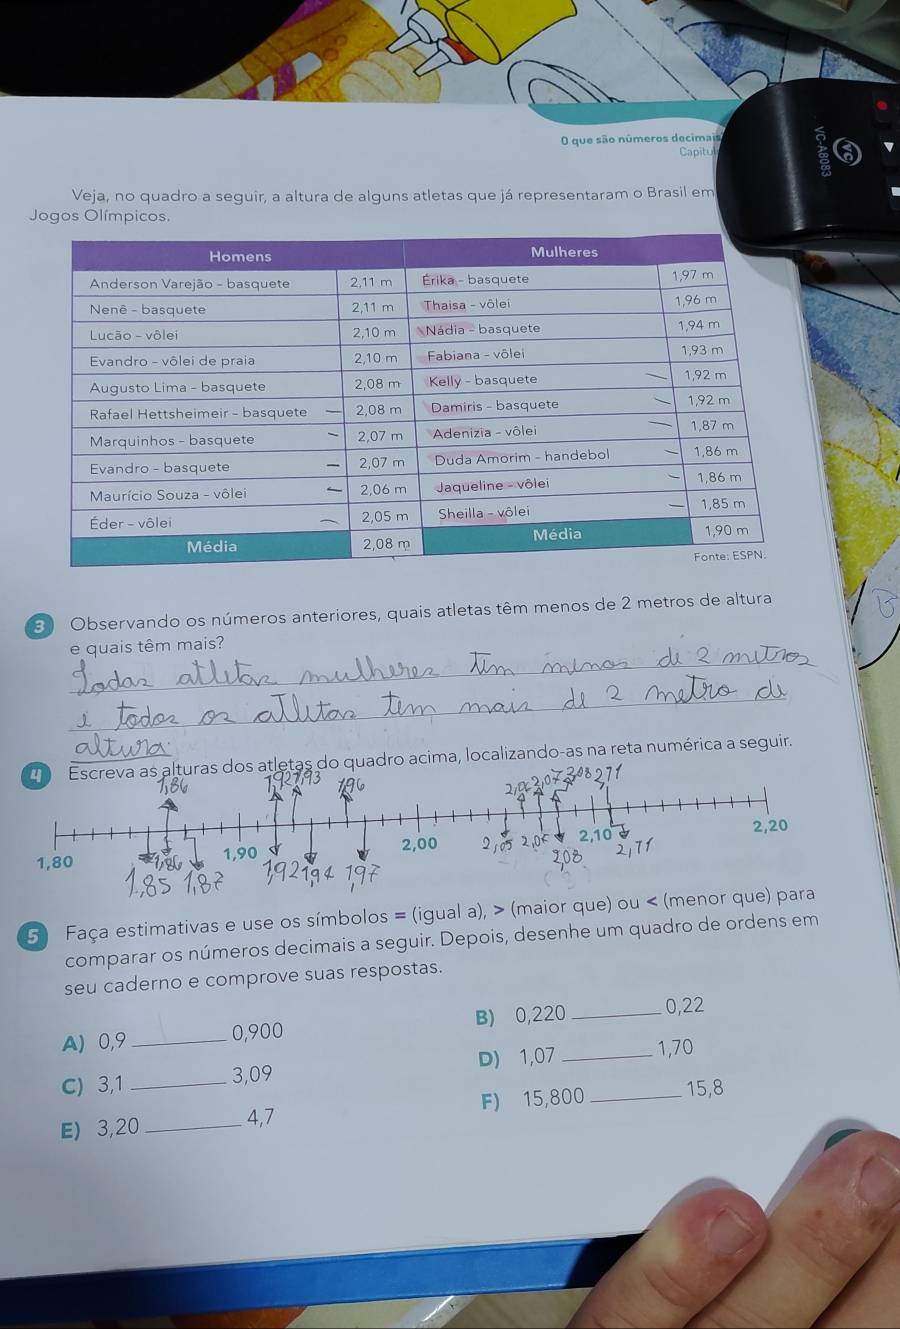 O que são números decimais
VC-A8083
VC
Veja, no quadro a seguir, a altura de alguns atletas que já representaram o Brasil em
Jogos Olímpicos.
Homens Mulheres
Anderson Varejão - basquete 2,11 m Érika - basquete 1,97 m
Nenê - basquete 2,11 m Thaisa - vôlei 1,96 m
Lucão - vôlei 2,10 m Nádia - basquete 1,94 m
Evandro - vôlei de praia 2,10 m Fabiana - vôlei 1,93 m
Augusto Lima - basquete 2,08 m Kelly - basquete 1,92 m
Rafael Hettsheimeir - basquete 2,08 m Damiris - basquete 1,92 m
Marquinhos - basquete 2,07 m Adenizia - vôlei 1,87 m
Evandro - basquete 2,07 m Duda Amorim - handebol 1,86 m
Maurício Souza - vôlei 2,06 m Jaqueline - vôlei 1,86 m
Éder - vôlei 2,05 m Sheilla - vôlei 1,85 m
Média 2,08 m Média 1,90 m
Fonte: ESPN.
3 Observando os números anteriores, quais atletas têm menos de 2 metros de altura
e quais têm mais?
Todas atletas mulheres têm menos de 2 metros
e todos os atletas tem mais de 2 metro de
altura.
4 Escreva as alturas dos atletas do quadro acima, localizando-as na reta numérica a seguir.
1,86 1,92 1,93 1,96 2,07 2,08
1,80 1,90 2,00 2,10 2,20
1,86 2,05 2,08
1,85 1,87 1,92 1,94 1,97
5 Faça estimativas e use os símbolos = (igual a), > (maior que) ou < (menor que) para
comparar os números decimais a seguir. Depois, desenhe um quadro de ordens em
seu caderno e comprove suas respostas.
A) 0,9 ______ 0,900 B) 0,220 ______ 0,22
C) 3,1 ______ 3,09 D) 1,07 ______ 1,70
E) 3,20 ______ 4,7 F) 15,800 ______ 15,8